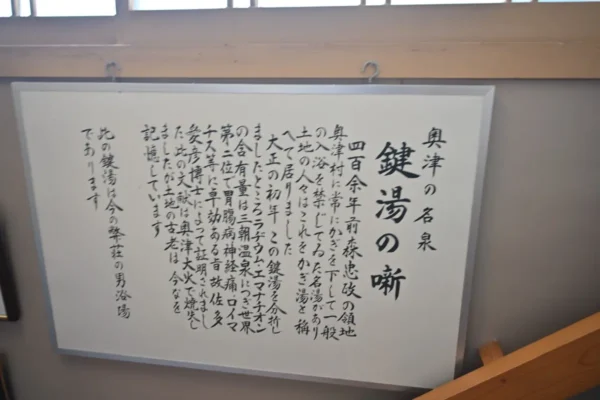 奥津の名泉
鍵湯の噺
四百余年前森忠政の領地
奥津村に常にかぎを下して一般
の入浴を禁じてゐた名湯があり
土地の人々はこれをかぎ湯と称
へて居りました
大正の初年この鍵湯を分析し
ましたところラヂウム・エマナチオン
の含有量は三朝温泉につぎ世界
第二位で胃腸病神経痛・ロイマ
チス等に卓効ある旨故佐多
愛彦博士によつて証明されまし
た此の文献は奥津大火で焼失し
ましたが土地の古老は今なを
記憶しています
此の鍵湯は今の弊荘の男浴場
であります